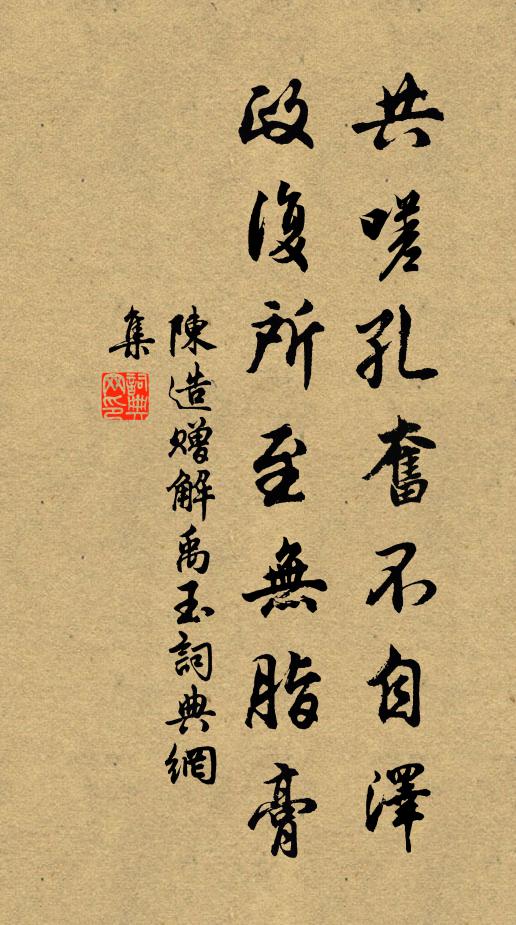 共嗟孔奮不自澤
政復所至無脂膏
陳造贈解禹玉詞典網
集
詞典
网印